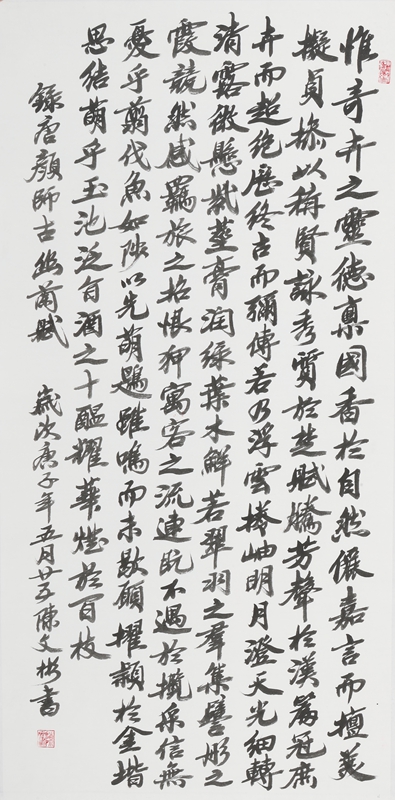 惟奇卉之靈德稟國香於自然儷嘉言而擅美
擬貞操以稱賢詠秀質於楚賦騰芳聲於漢篇冠庶
卉而超絕歷終古而彌傳若乃浮雲捲岫明月澄天光細轉
清露微懸紫莖膏潤綠葉水鮮若翠羽之羣集譬彤之
霞競然感羈旅之招恨狎寓客之流連既不遇於攬采信無
憂乎翦伐魚如陟以先萌鶗雖鳴而未歇願擢穎於金堦
思結萌乎玉池泛旨酒之十醞耀華燈於百枝
錄唐顏師古幽蘭賦 歲次庚子年五月廿五陳文彬書